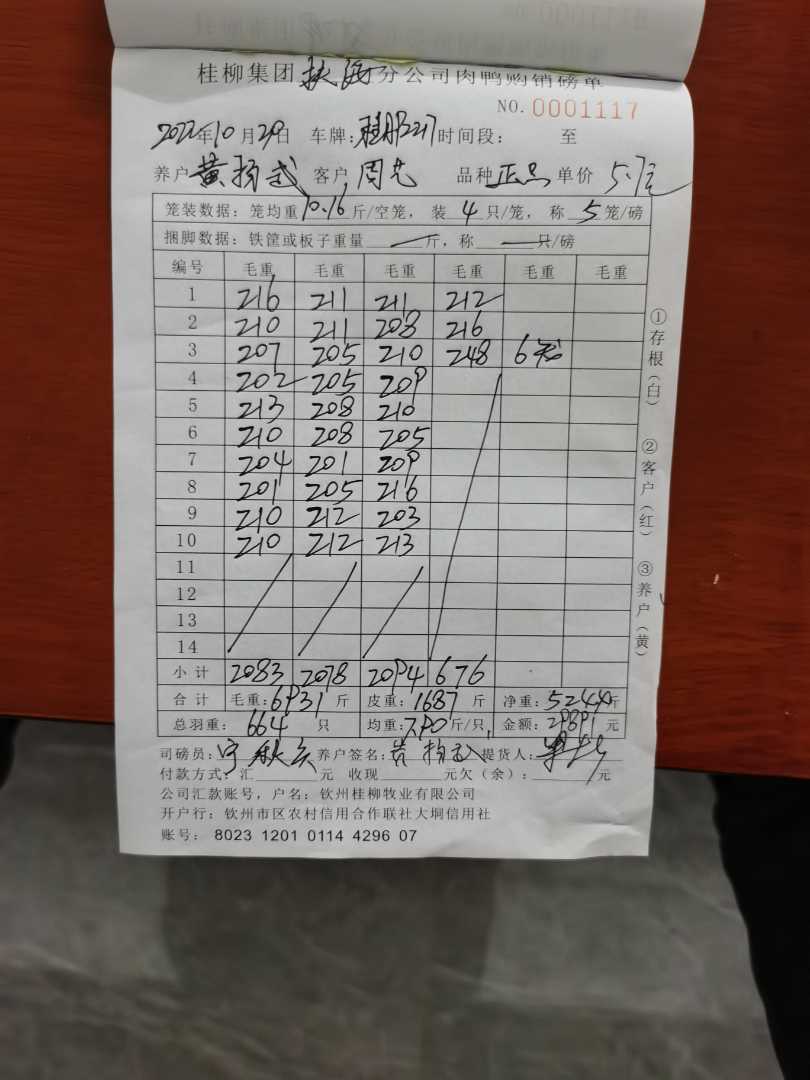 桂柳集团 扶海 分公司肉鸭购销磅单
NO. 0001117
2022年10月29日 车牌: 217 时间段: 至
养户 黄扬武 客户 周 品种 正品 单价 5.7元
笼装数据: 笼均重 10.16 斤/空笼, 装 4 只/笼, 称 5 笼/磅
捆脚数据: 铁筐或板子重量 — 斤, 称 — 只/磅
编号 毛重 毛重 毛重 毛重 毛重 毛重
1 216 211 211 212
2 210 211 208 216
3 207 205 210 248 6笼
4 202 205 209
5 213 208 210
6 210 208 205
7 204 201 209
8 201 205 216
9 210 212 203
10 210 212 213
11
12
13
14
小计 2083 2078 2094 676
合计 毛重: 6931 斤 皮重: 1687 斤 净重: 5244 斤
总羽重: 664 只 均重: 7.90 斤/只, 金额: 29891 元
司磅员: 宁 养户签名: 黄扬武 提货人:
付款方式: 汇 元 收现 元欠(余): 元
公司汇款账号, 户名: 钦州桂柳牧业有限公司
开户行: 钦州市区农村信用合作联社大垌信用社
账号: 8023 1201 0114 4296 07
①存根(白)
②客户(红)
③养户(黄)